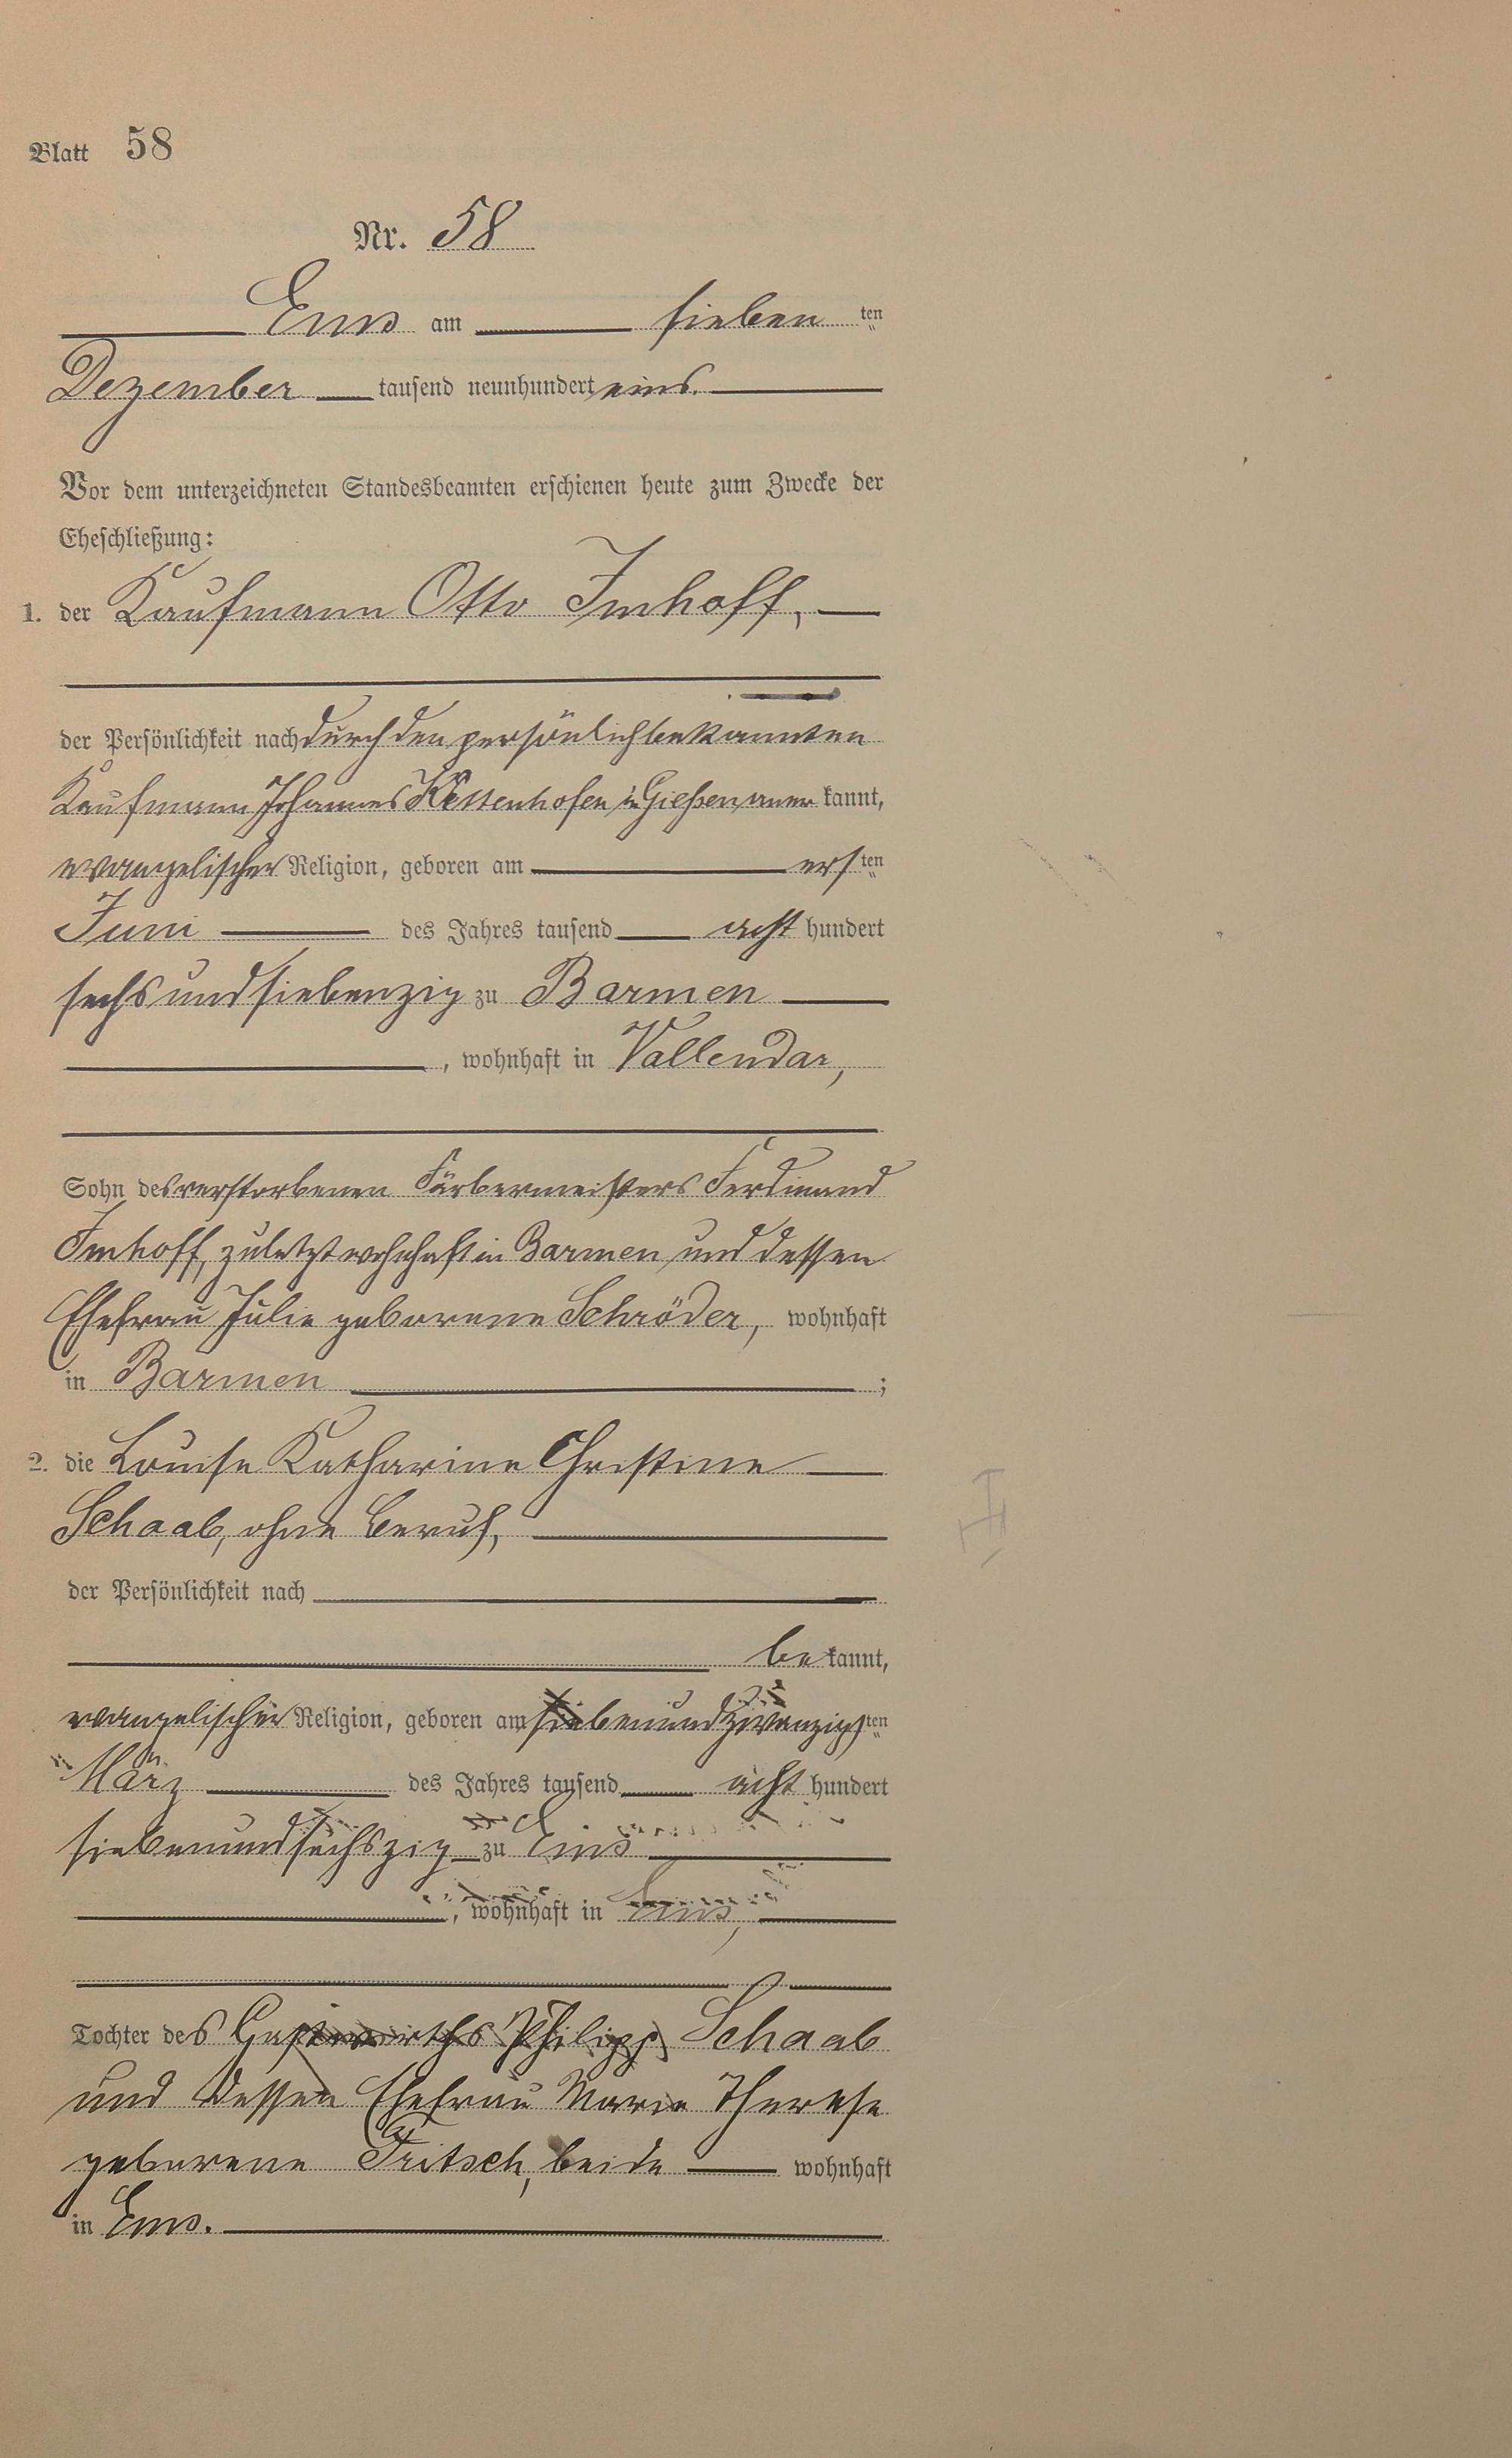 Blatt 58
Nr. 58
Ems am sieben ten
Dezember tausend neunhundert eins.
Vor dem unterzeichneten Standesbeamten erschienen heute zum Zwecke der
Eheschließung:
1. der Kaufmann Otto Imhoff,
der Persönlichkeit nach durch den persönlich bekannten
Kaufmann Johannes Kettenhofen in Gießen aner kannt,
evangelischer Religion, geboren am ers ten
Juni des Jahres tausend acht hundert
sechsundsiebenzig zu Barmen
, wohnhaft in Vallendar,
Sohn des verstorbenen Färbermeisters Ferdinand
Imhoff, zuletzt wohnhaft in Barmen und dessen
Ehefrau Julie geborene Schröder, wohnhaft
in Barmen ;
2. die Louise Katharine Christine
Schaab, ohne Beruf,
der Persönlichkeit nach
be kannt,
evangelischer Religion, geboren am siebenundzwanzigs ten
März des Jahres tausend acht hundert
siebenundsechszig zu Ems
, wohnhaft in Ems,
Tochter des Gastwirths Philipp Schaab
und dessen Ehefrau Marie Therese
geborene Fritsch, beide wohnhaft
in Ems.